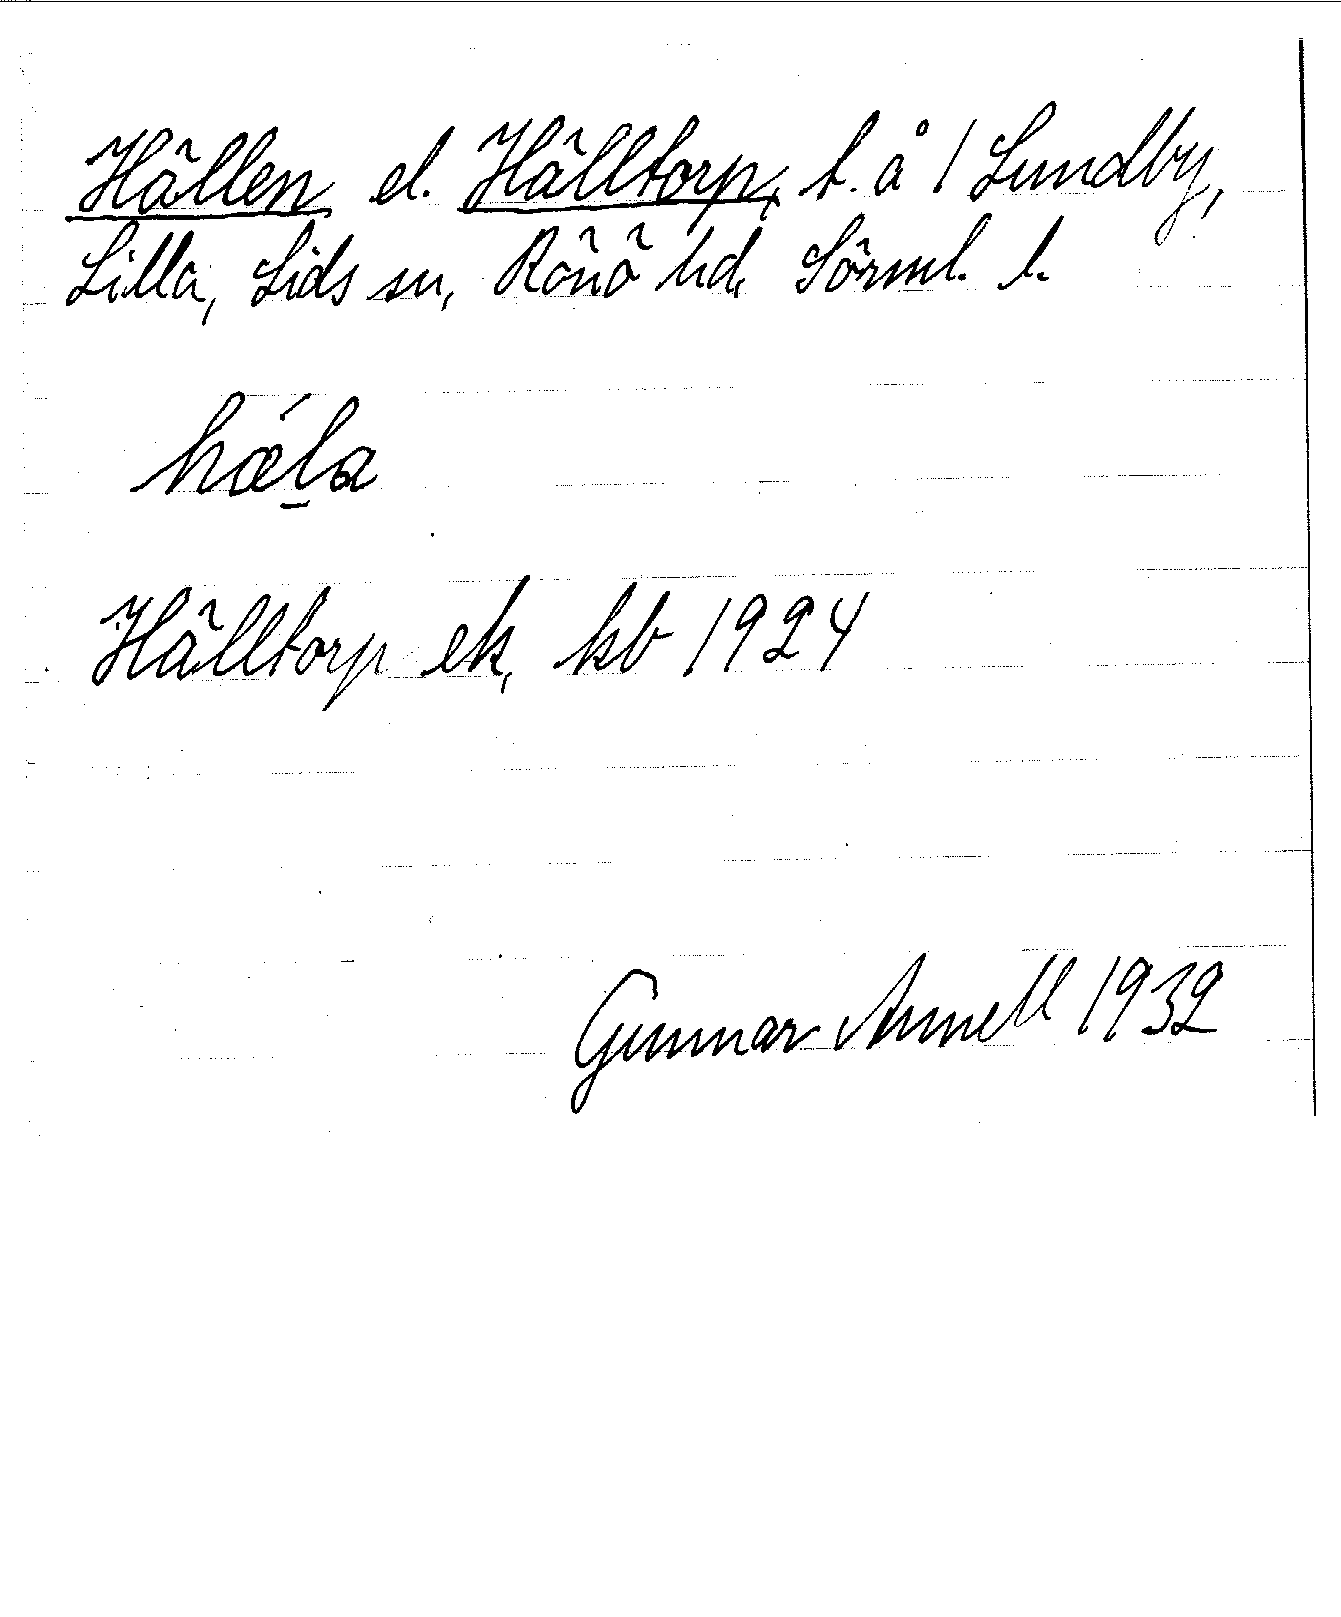 Hällen el. Hälltorp, t. å 1 Lundby,
Lilla, Lids sn, Rönö hd, Sörml. l.
hæ̀l̠a
Hälltorp ek, kb 1924
Gunnar Annell 1932